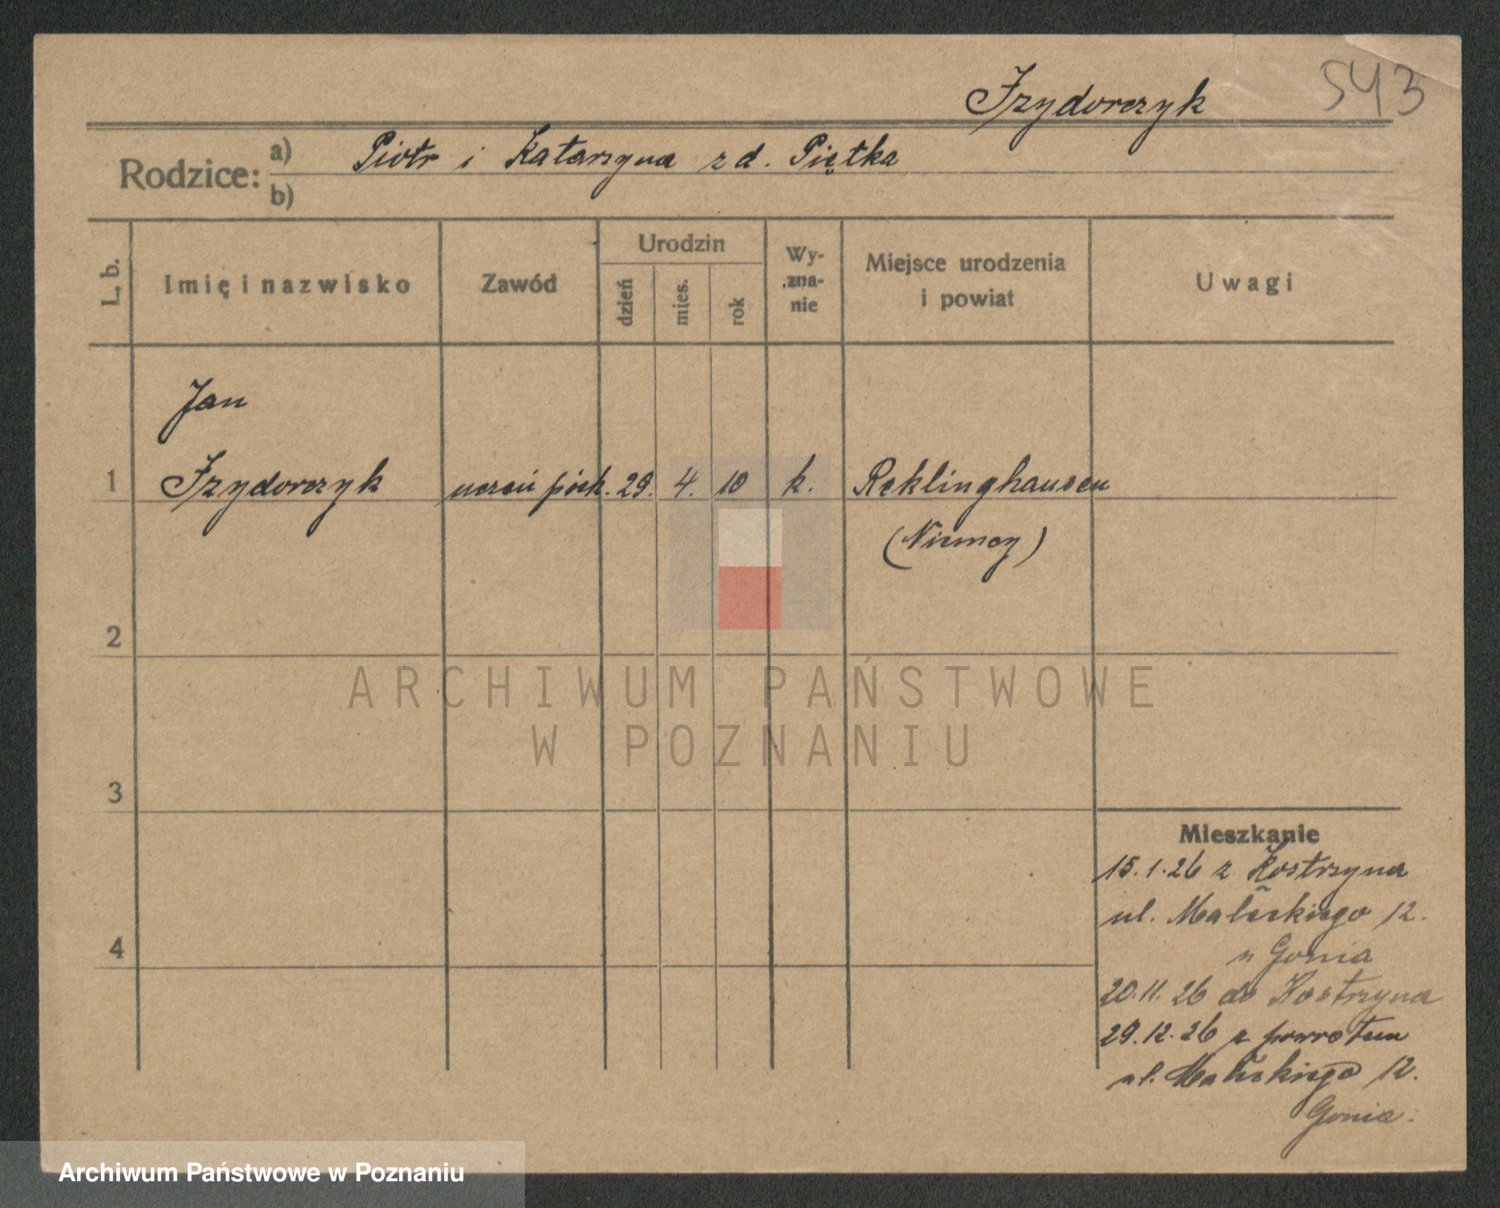 Izydorczyk 543
Rodzice: a) Piotr i Katarzyna z d. Piętka
b)
L. b.
Imię i nazwisko
Zawód
Urodzin
dzień
mies.
rok
Wy-
zna-
nie
Miejsce urodzenia
i powiat
Uwagi
Jan
1 Izydorczyk uczeń piek. 29. 4. 10 k. Reklinghausen
(Niemcy)
2
3
4
Mieszkanie
15.1.26 z Kostrzyna
ul. Małeckiego 12.
u Gonia
20.11.26 do Kostrzyna
29.12.26 z powrotem
ul. Małeckiego 12.
Gonia.
ARCHIWUM PAŃSTWOWE
W POZNANIU
Archiwum Państwowe w Poznaniu